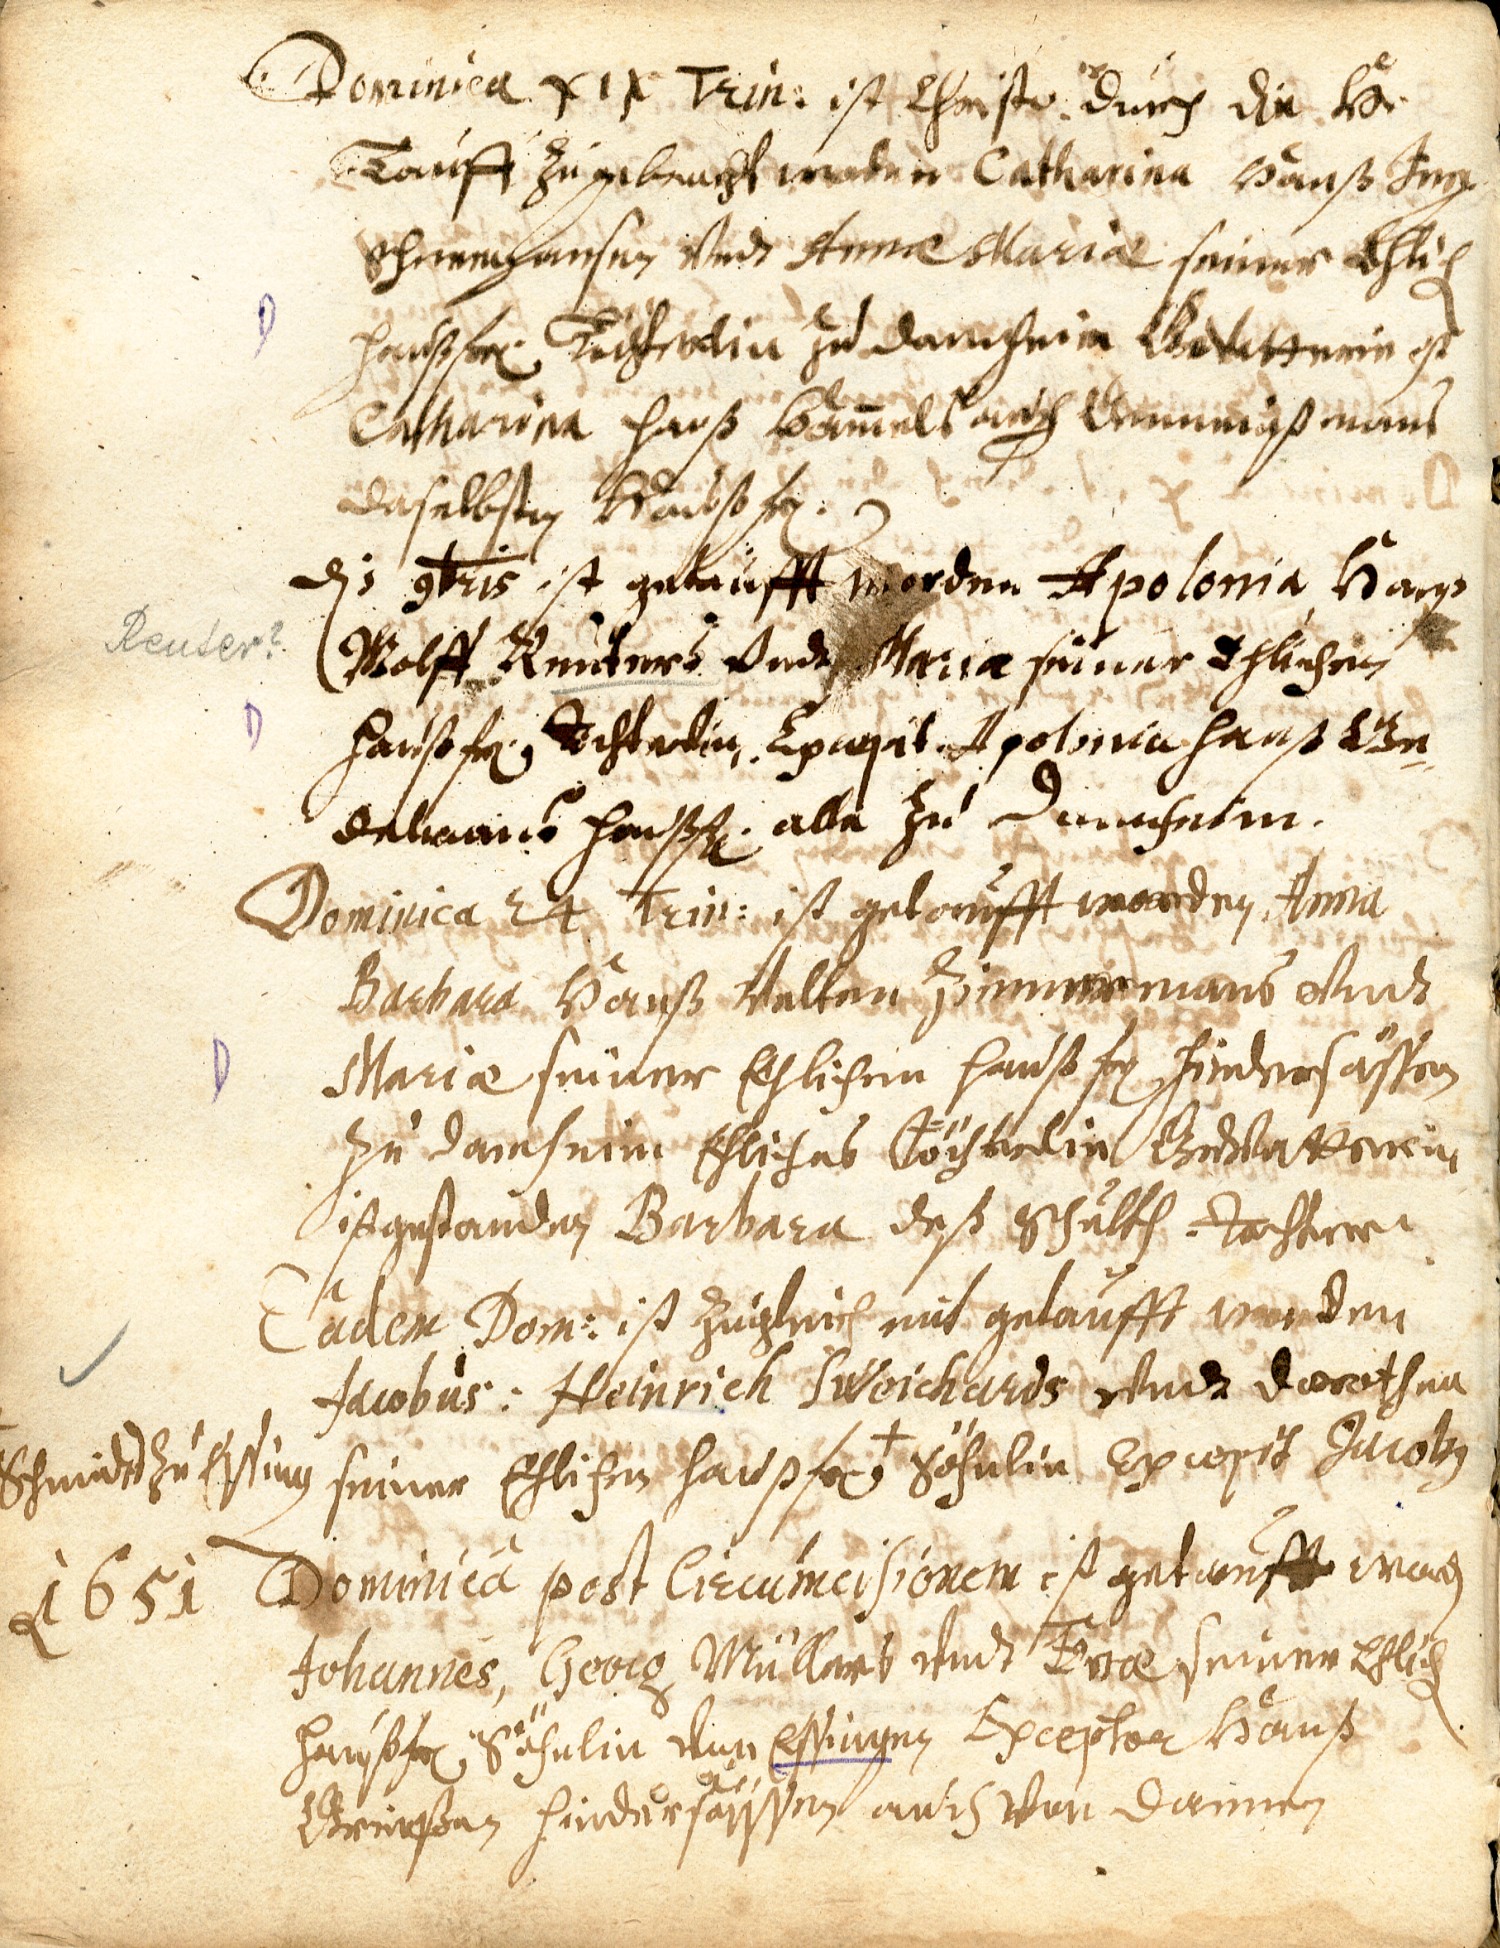 Dominica XIX Trin: ist Christo durch die H.
Tauff zugebracht worden Catharina Hanß
Vndt Annæ Mariæ seiner Ehlich
haußfr. Töchterlin zu Damheim Gevatterin ist
Catharina Hanß auch
daselbsten Haußfr.
die 9bris ist getaufft worden Apolonia, Hanß
Reuter?
Wolff Reuters Vndt Maria seiner Ehlichen
haußfr. Töchterlin, Excepit Apolonia Hanß
haußfr. alle zu Damheim.
Dominica 24 Trin: ist getaufft worden Anna
Barbara Hanß Velten Zimmermans Vndt
Mariæ seiner Ehlichen haußfr Hindersässen
zu Damheim Ehliches Töchterlin Gevatterin
ist gestanden Barbara deß Schulth. Tochter.
Eadem Dom: ist zugleich mit getaufft worden
Jacobus: Heinrich Weichards Vndt Dorothea
Schmidt zu Essing seiner Ehlichen haußfr. † Söhnlin Excepit Jacob
1651 Dominica post Circumcisionem ist getaufft word
Johannes, Georg Müllers Vndt Evæ seiner Ehlich
haußfr. Söhnlin Von Essingen Exceptor Hanß
Hindersässen auch Von Dannen